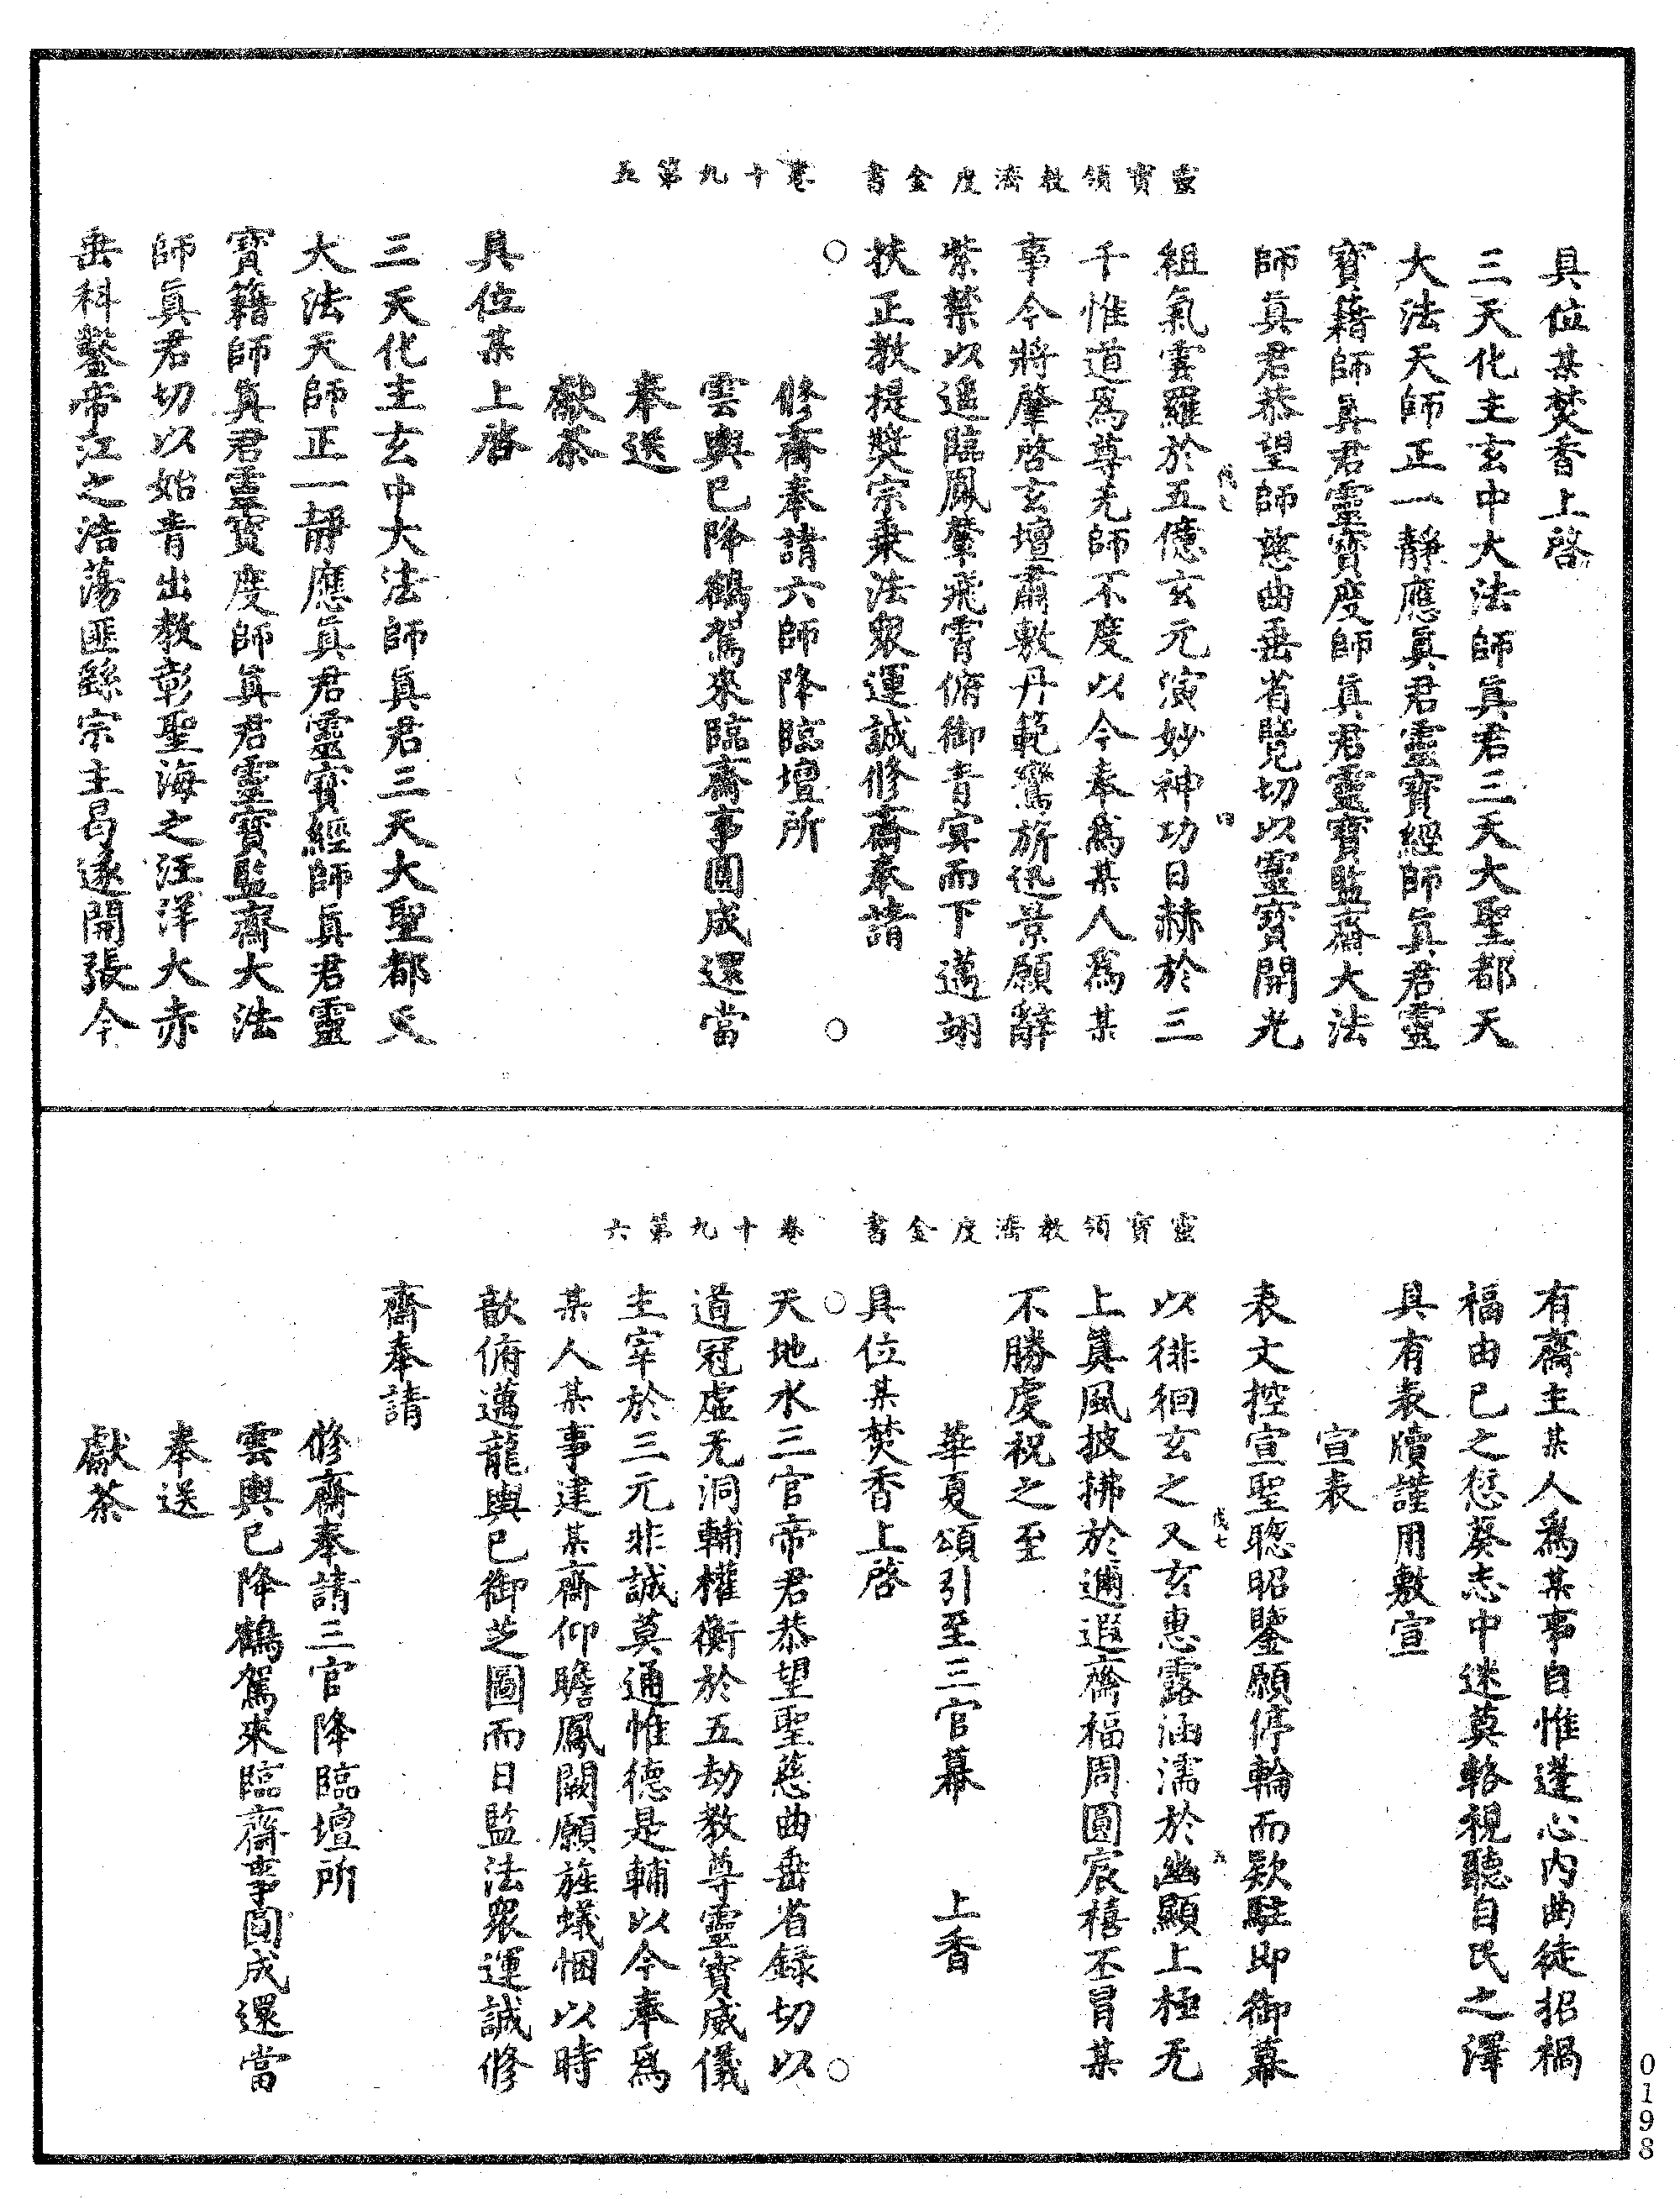 靈寶領教濟度金書 卷十九第五
具位某焚香上啓
三天化主玄中大法師眞君三天大聖都天
大法天師正一靜應眞君靈寶經師眞君靈
寶籍師眞君靈寶度師眞君靈寶監齋大法
師眞君恭望師慈曲垂省覽切以靈寶開光
組氣雲羅於五億玄元演妙神功日赫於三
千惟道爲尊无師不度以今奉爲某人爲某
事今將肇啓玄壇肅敷丹範鸞旂迅景願辭
紫禁以進臨鳳輦飛霄俯御青寅而下邁翊
扶正教提奬宗秉法衆運誠修齋奉請
修齋奉請六師降臨壇所
雲輿已降鶴駕來臨齋事圓成還當
奉送
獻茶
具位某上啓
三天化主玄中大法師眞君三天大聖都天
大法天師正一靜應眞君靈寶經師眞君靈
寶籍師眞君靈寶度師眞君靈寶監齋大法
師眞君切以始青出教彰聖海之汪洋大赤
垂科鑿帝江之浩蕩匪繇宗主曷遂開張今
靈寶領教濟度金書 卷十九第六
有齋主某人爲某事自惟蓬心内曲徒招禍
福由已之愆葵志中迷莫輅視聽自民之澤
具有表牘謹用敷宣
宣表
表文控宣聖聦昭鑒願停輪而欵駐即御幕
以徘徊玄之又玄惠露涵濡於幽顯上極无
上眞風披拂於邇遐齋福周圓宸禧丕冒某
不勝虔祝之至
華夏頌引至三官幕 上香
具位某焚香上啓
天地水三官帝君恭望聖慈曲垂省録切以
道冠虛无洞輔權衡於五劫教尊靈寶威儀
主宰於三元非誠莫通惟德是輔以今奉爲
某人某事建某齋仰瞻鳳闕願旌蟻悃以時
歆俯邁龍輿已御芝圖而日監法衆運誠修
齋奉請
修齋奉請三官降臨壇所
雲輿已降鶴駕來臨齋事圓成還當
奉送
獻茶
0198